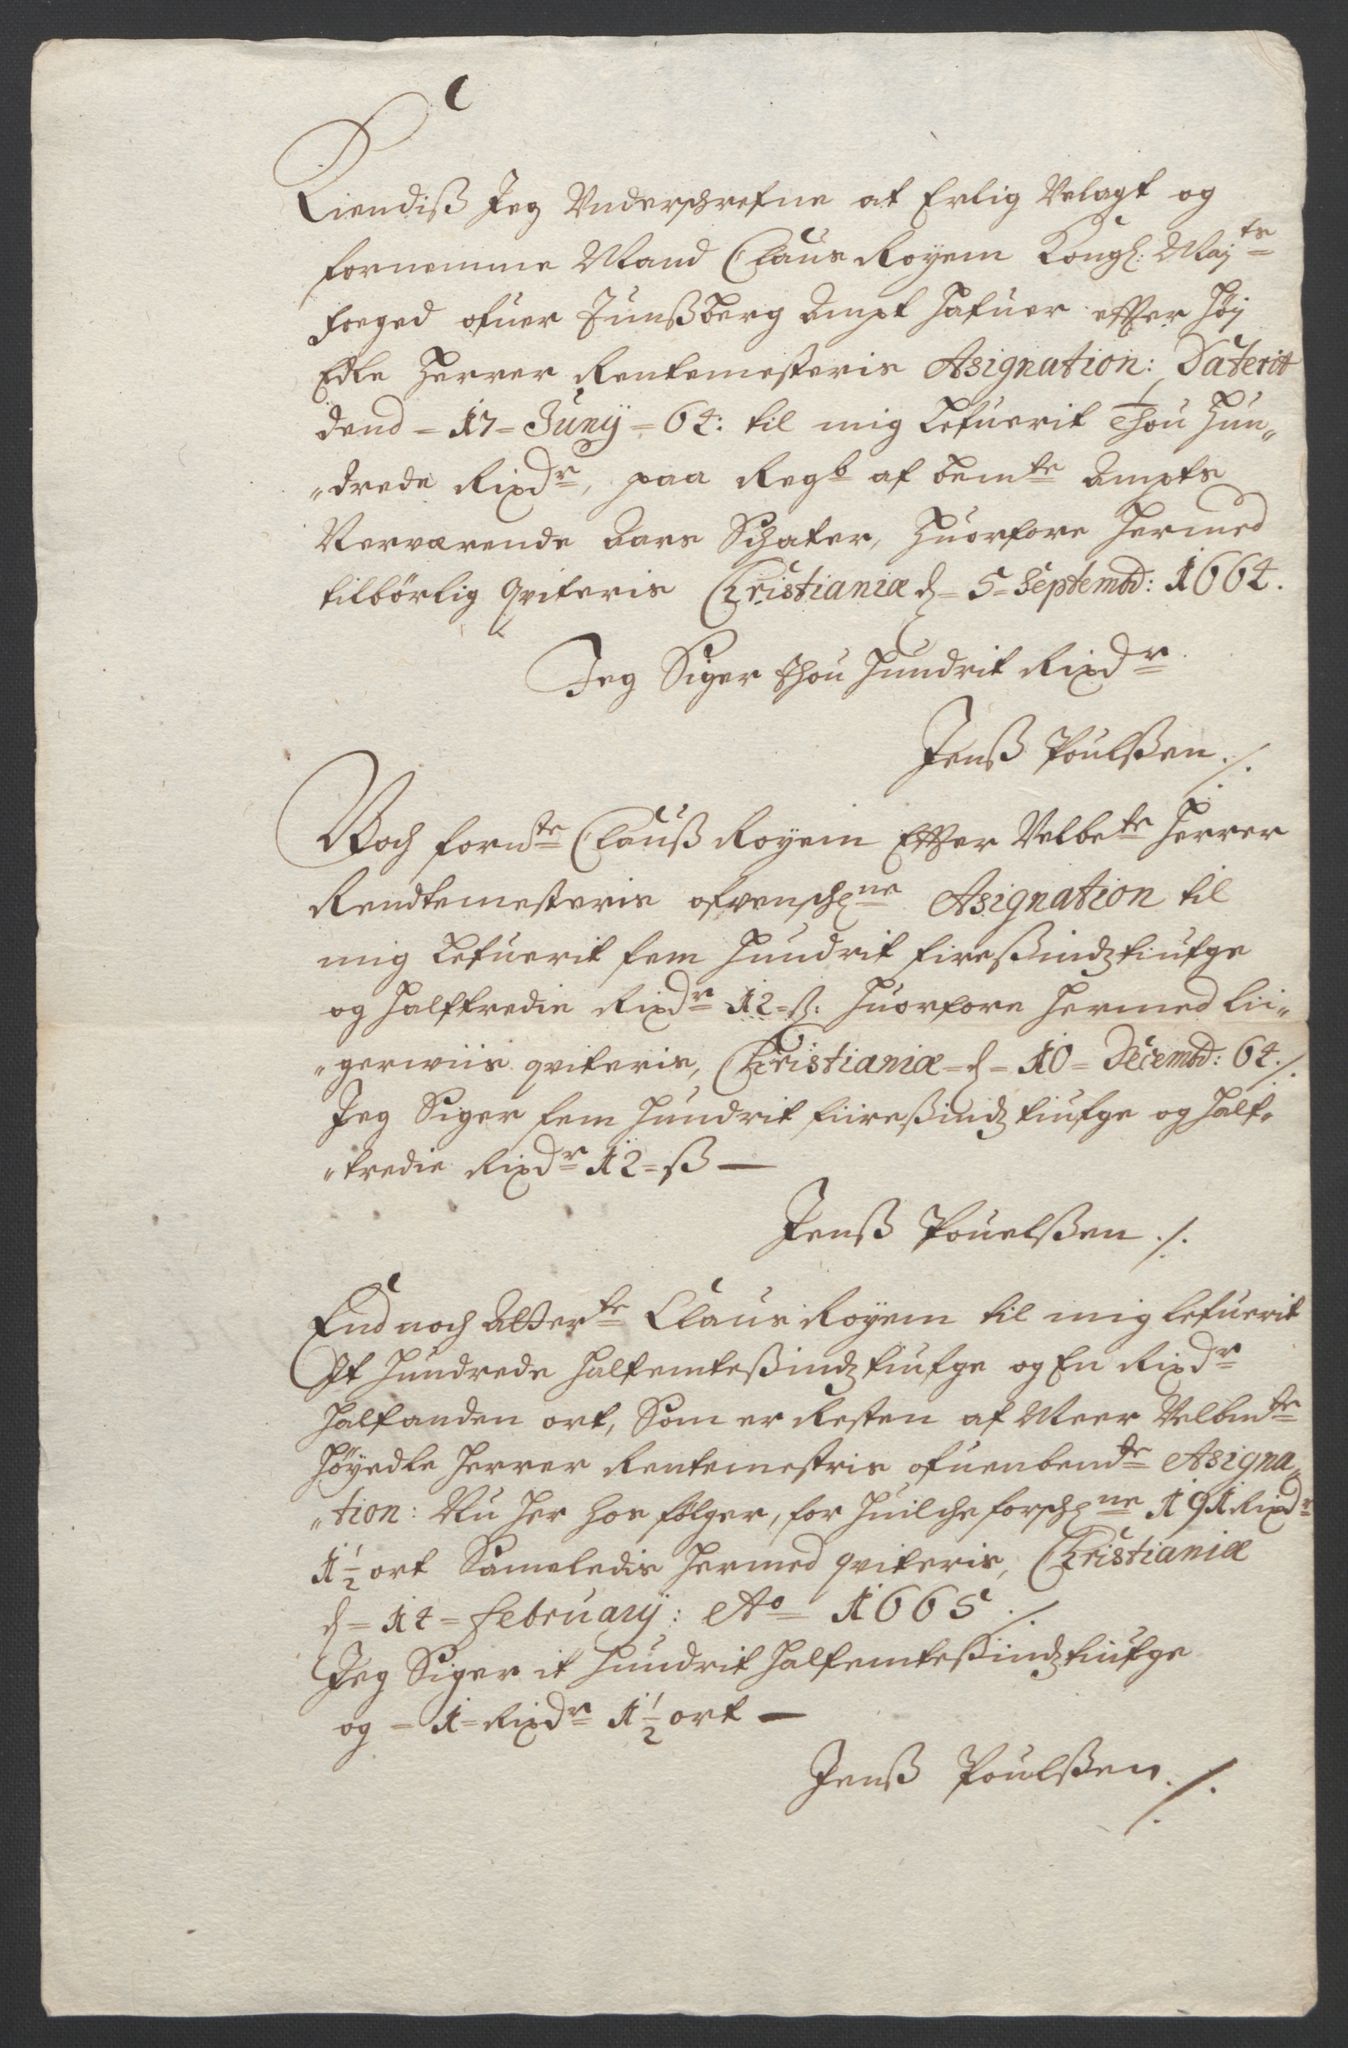 Kiendiß Jeg Underschrefne at Erlig Velagt og
fornemme Mand Claus Royem Kongl: Maj:ts
foeged ofuer Junßberg Ampt hafuer efter Høj
Edle Herrer Rentemesteris Asignation: Daterit
dend = 17 = Junij = 64: til mig lefuerit Thou Hun„
„drede Rixdr, paa Regb af bemte Ampts
Nerværende Aars Schater, Huorfore hermed
tilbørlig qviteris Christianiæ d = 5 = Septembd: 1664.
Jeg Siger thou Hundrit Rixdr
Jenß Poulßen ./.
Noch fornte Clauß Royem Efter Velbete Herrer
Rendtemesteris ofvenschne Asignation til
mig lefuerit fem Hundrit firesindztiufge
og halftredie Rixdr 12 = ß: Huorfore hermed lii„
„gerwiis qviteris, Christianiæ = d = 10 = Decembd: 64 ./.
Jeg Siger fem Hundrit fiiresindztiufge og half„
„tredie Rixdr 12 = ß —
Jenß Pouelßen ./.
End noch Atterte Claus Royem til mig lefuerit
It Hundrede halfemtesindztiufge og En Rixdr
halfanden ort, Som er Resten af Meer Velbmte
Høyedle Herrer Rentemestris ofuenbemte Asigna„
„tion: Nu her hos følger, for huilche forschne 191 Rixdr
1½ ort Sameledis hermed qviteris, Christianiæ
d = 14 = February: Ao = 1665 ./.
Jeg Siger it Hundrit halfemtesindztiufge
og = 1 = Rixdr 1½ ort —
Jenß Poulßen ./.